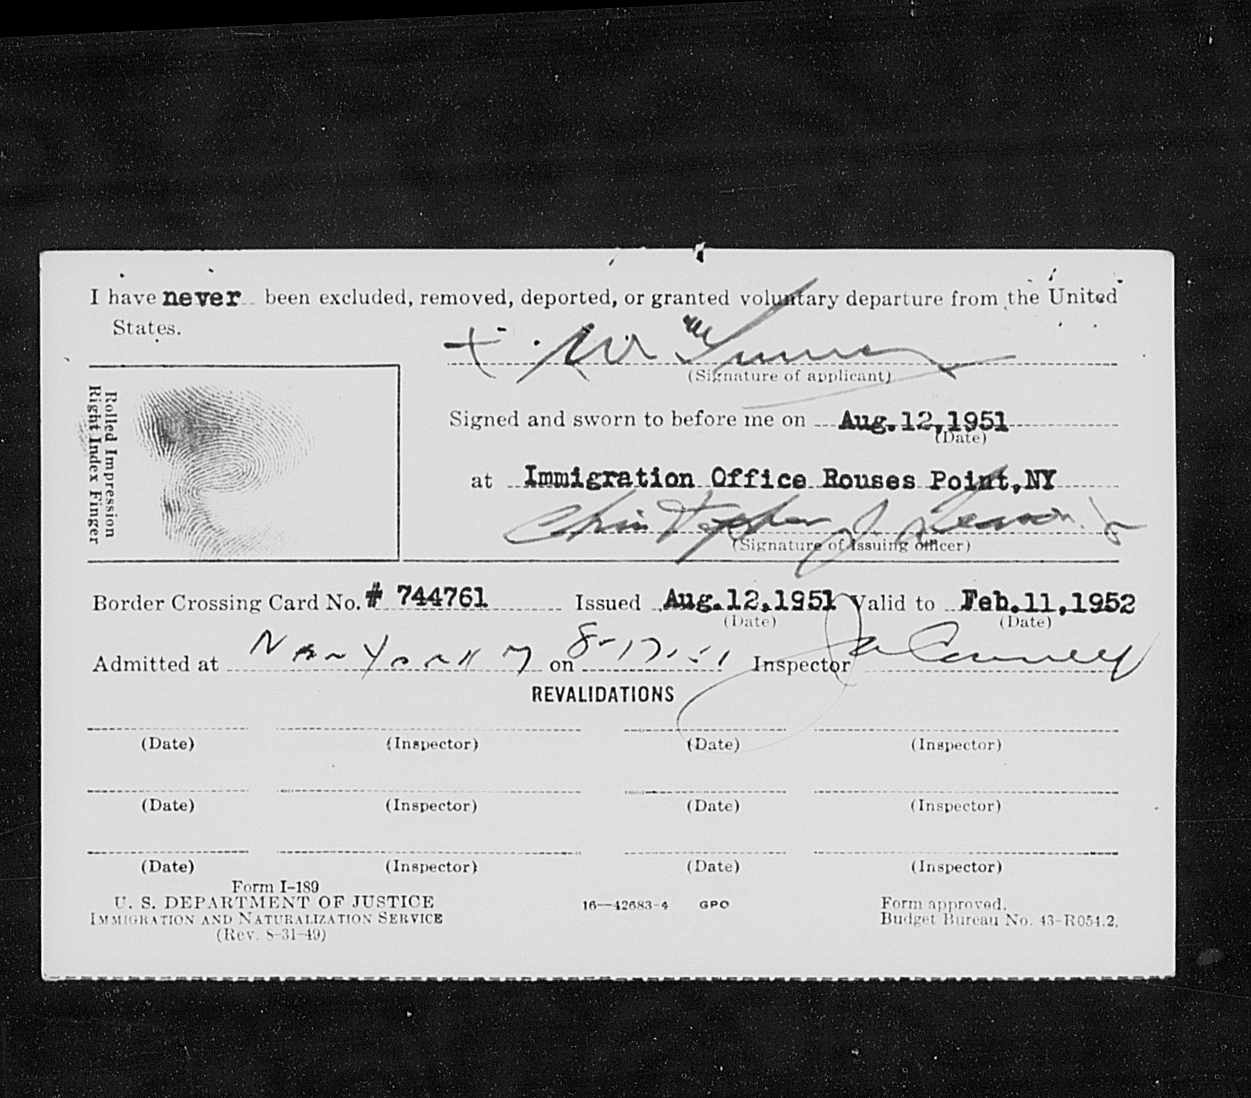 I have never been excluded, removed, deported, or granted voluntary departure from the United
States.
(Signature of applicant)
Rolled Impression
Right Index Finger
Signed and sworn to before me on Aug.12,1951
(Date)
at Immigration Office Rouses Point,NY
Christopher J.
(Signature of issuing officer)
Border Crossing Card No. # 744761 Issued Aug.12,1951 Valid to Feb.11,1952
(Date) (Date)
Admitted at New York N Y on 8-17-51 Inspector
REVALIDATIONS
(Date) (Inspector) (Date) (Inspector)
(Date) (Inspector) (Date) (Inspector)
(Date) (Inspector) (Date) (Inspector)
Form I-189
U. S. DEPARTMENT OF JUSTICE
IMMIGRATION AND NATURALIZATION SERVICE
(Rev. 8-31-49)
16—42683-4 GPO
Form approved.
Budget Bureau No. 43-R054.2.